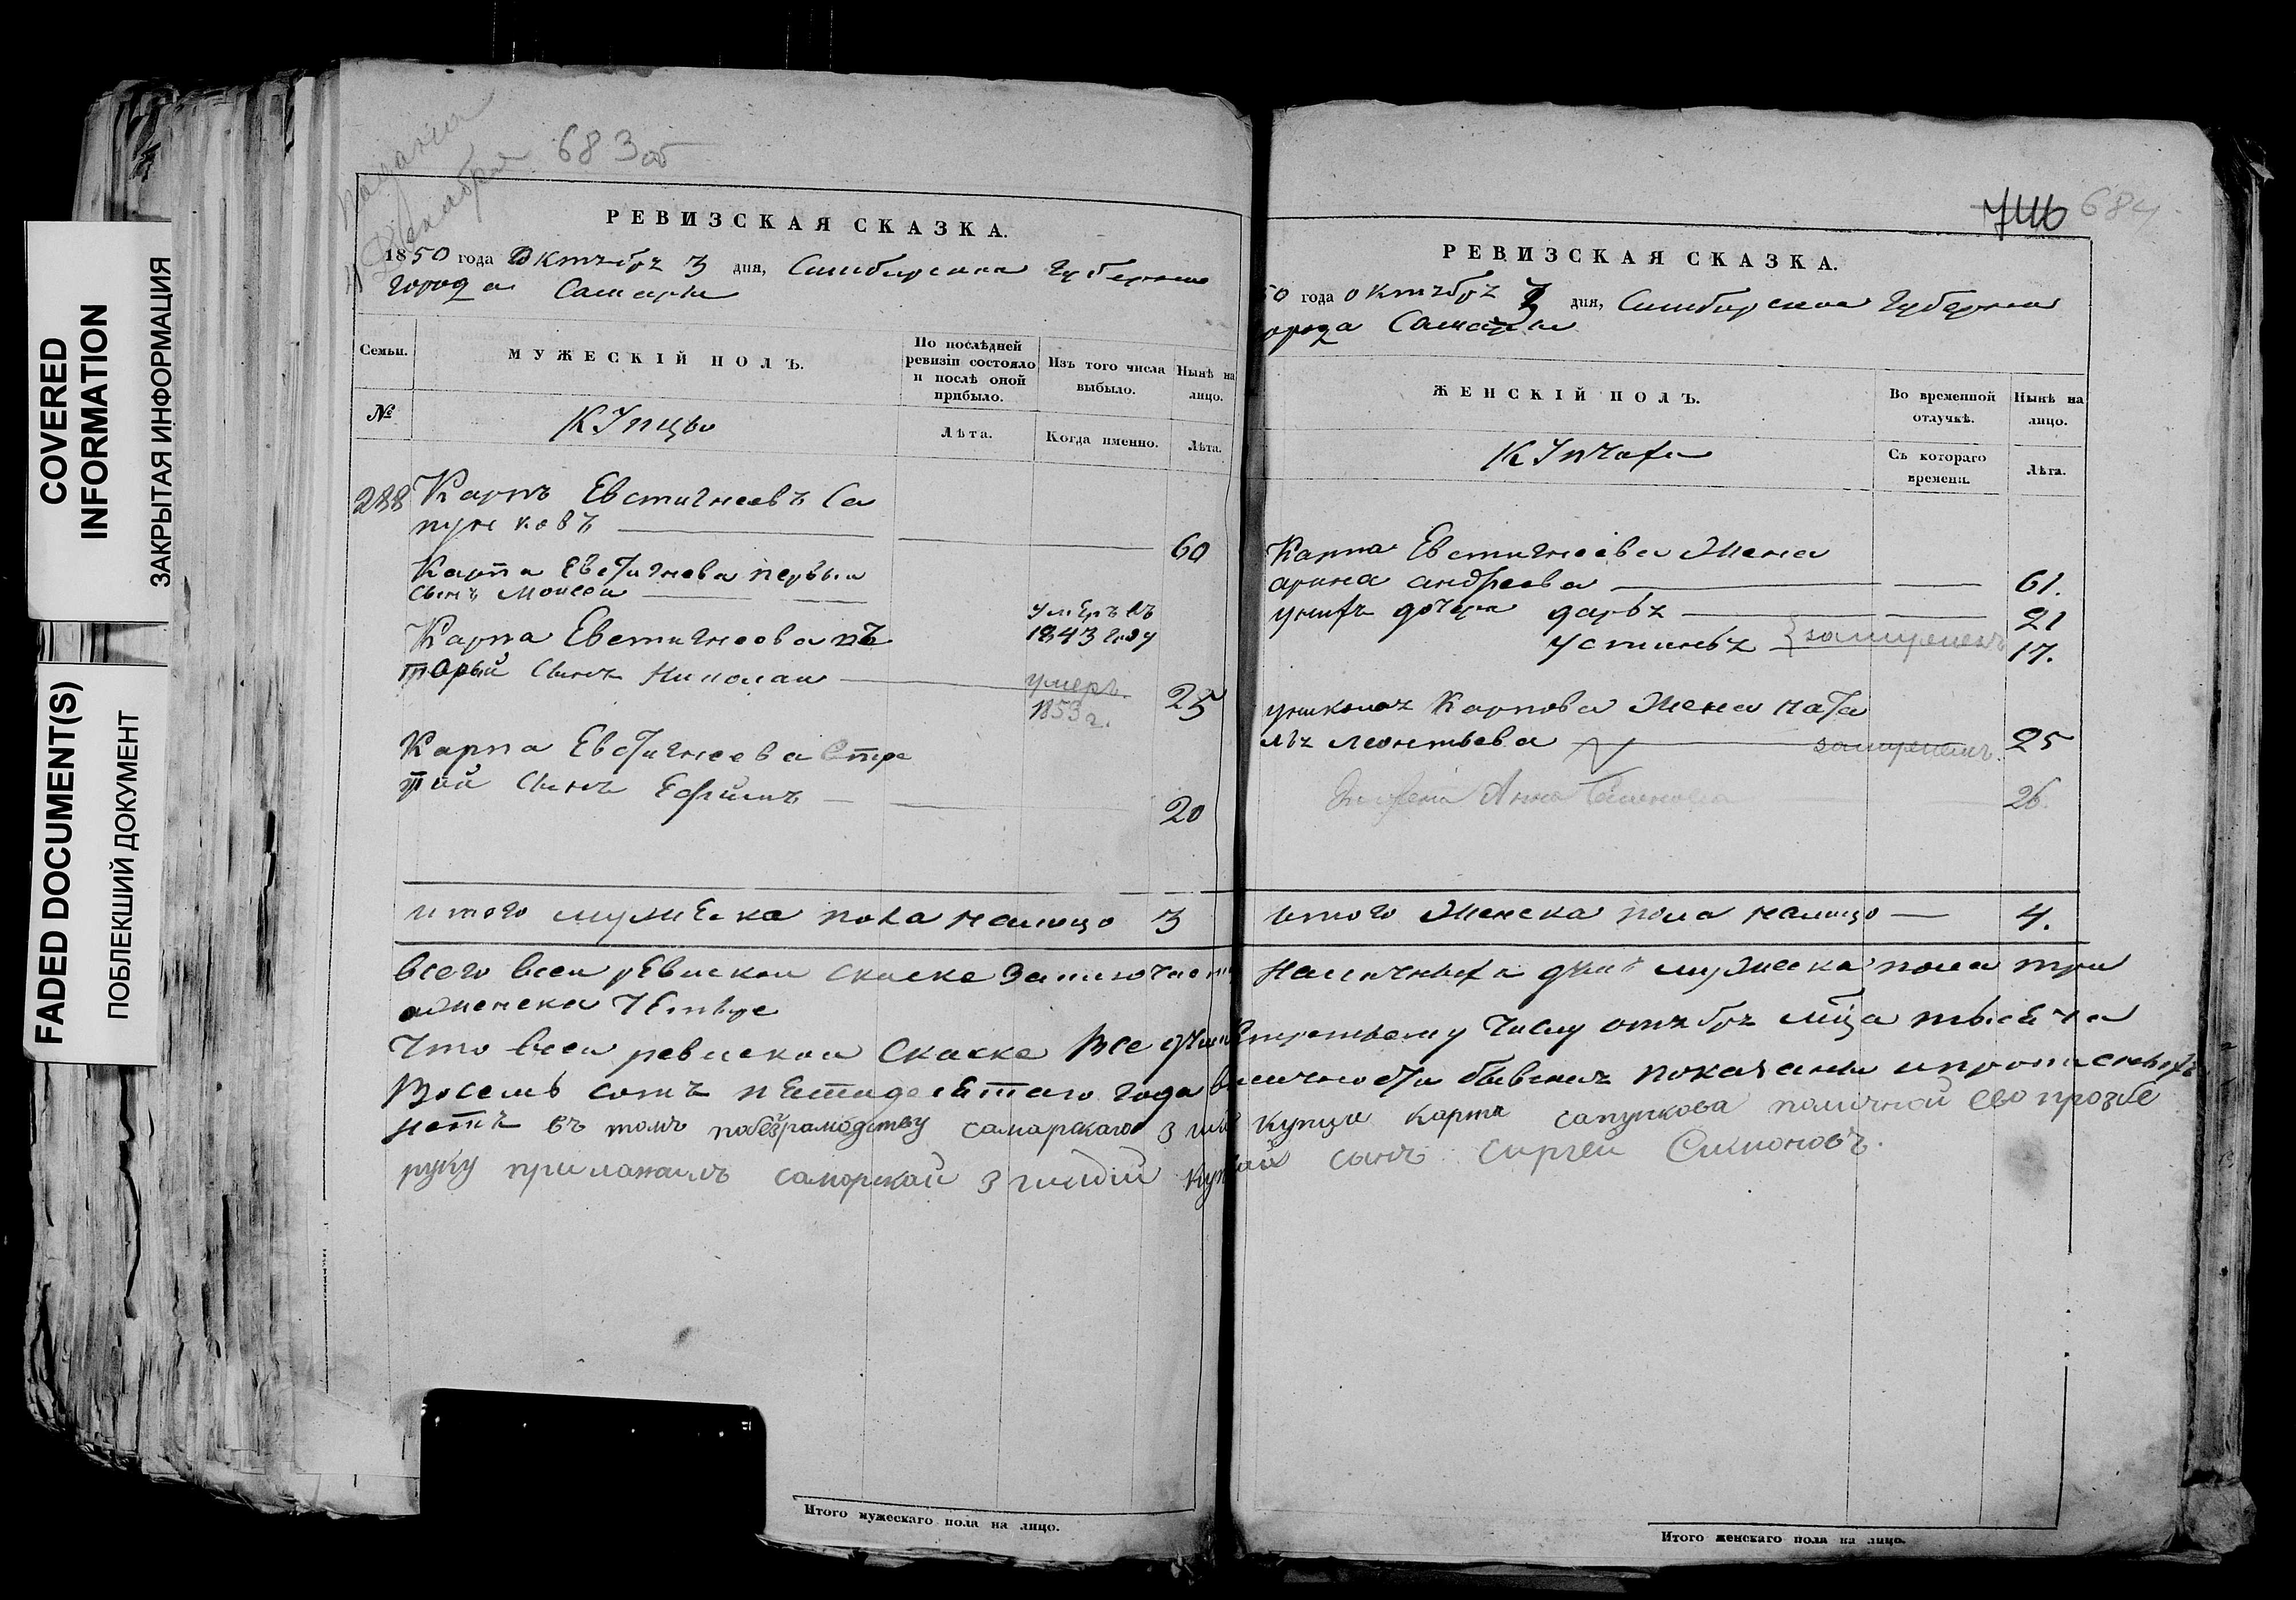 COVERED
INFORMATION
ЗАКРЫТАЯ ИНФОРМАЦИЯ
FADED DOCUMENT(S)
ПОБЛЕКШИЙ ДОКУМЕНТ
подана
Декабря
683об
РЕВИЗСКАЯ СКАЗКА.
1850 года Октября 3 дня, Симбирской Губернии
города Самары
Семьи.
МУЖЕСКІЙ ПОЛЪ.
По послѣдней
ревизіи состояло
и послѣ оной
прибыло.
Изъ того числа
выбыло.
Нынѣ на
лицо.
№
Купцы
Лѣта.
Когда именно.
Лѣта.
288 Карпъ Евстигнеевъ Са
пунковъ
60
Карпа Евстигнева первыи
сынъ Моисеи
умеръ въ
1843 году
Карпа Евстигнеева въ
торый сынъ Николаи
умеръ
1853 г.
25
Карпа Евстигнеева
тий сынъ Ефимъ
20
итого мужеска пола налицо 3
746 684
РЕВИЗСКАЯ СКАЗКА.
50 года октября 3 дня, Симбирской Губернии
орода Самары
ЖЕНСКІЙ ПОЛЪ.
Во временной
отлучкѣ.
Нынѣ на
лицо.
Купчахи
Съ котораго
времени.
Лѣта.
Карпа Евстигнеева Жена
арина андреева 61.
унихъ дочери дарья 21
устинья замужемъ 17.
уникола Карпова Жена ната
лья леонтьева замужемъ 25
Анна 26
итого Женска пола налицо 4.
всего всеи ревискои скаске наличныхъ душъ мужеска пола три
аженска Четыре
Что всеи ревискои Скаске Все третьему Числу октября мца тысеча
Восемь сотъ петидесетаго года показаны
нетъ въ томъ побезграмодству самарскаго 3 купца Карпа сапункова поличной его прозбе
руку приложилъ саморской 3 гилдіи сынъ Сиргеи Симоновъ.
Итого мужескаго пола на лицо.
Итого женскаго пола на лицо.